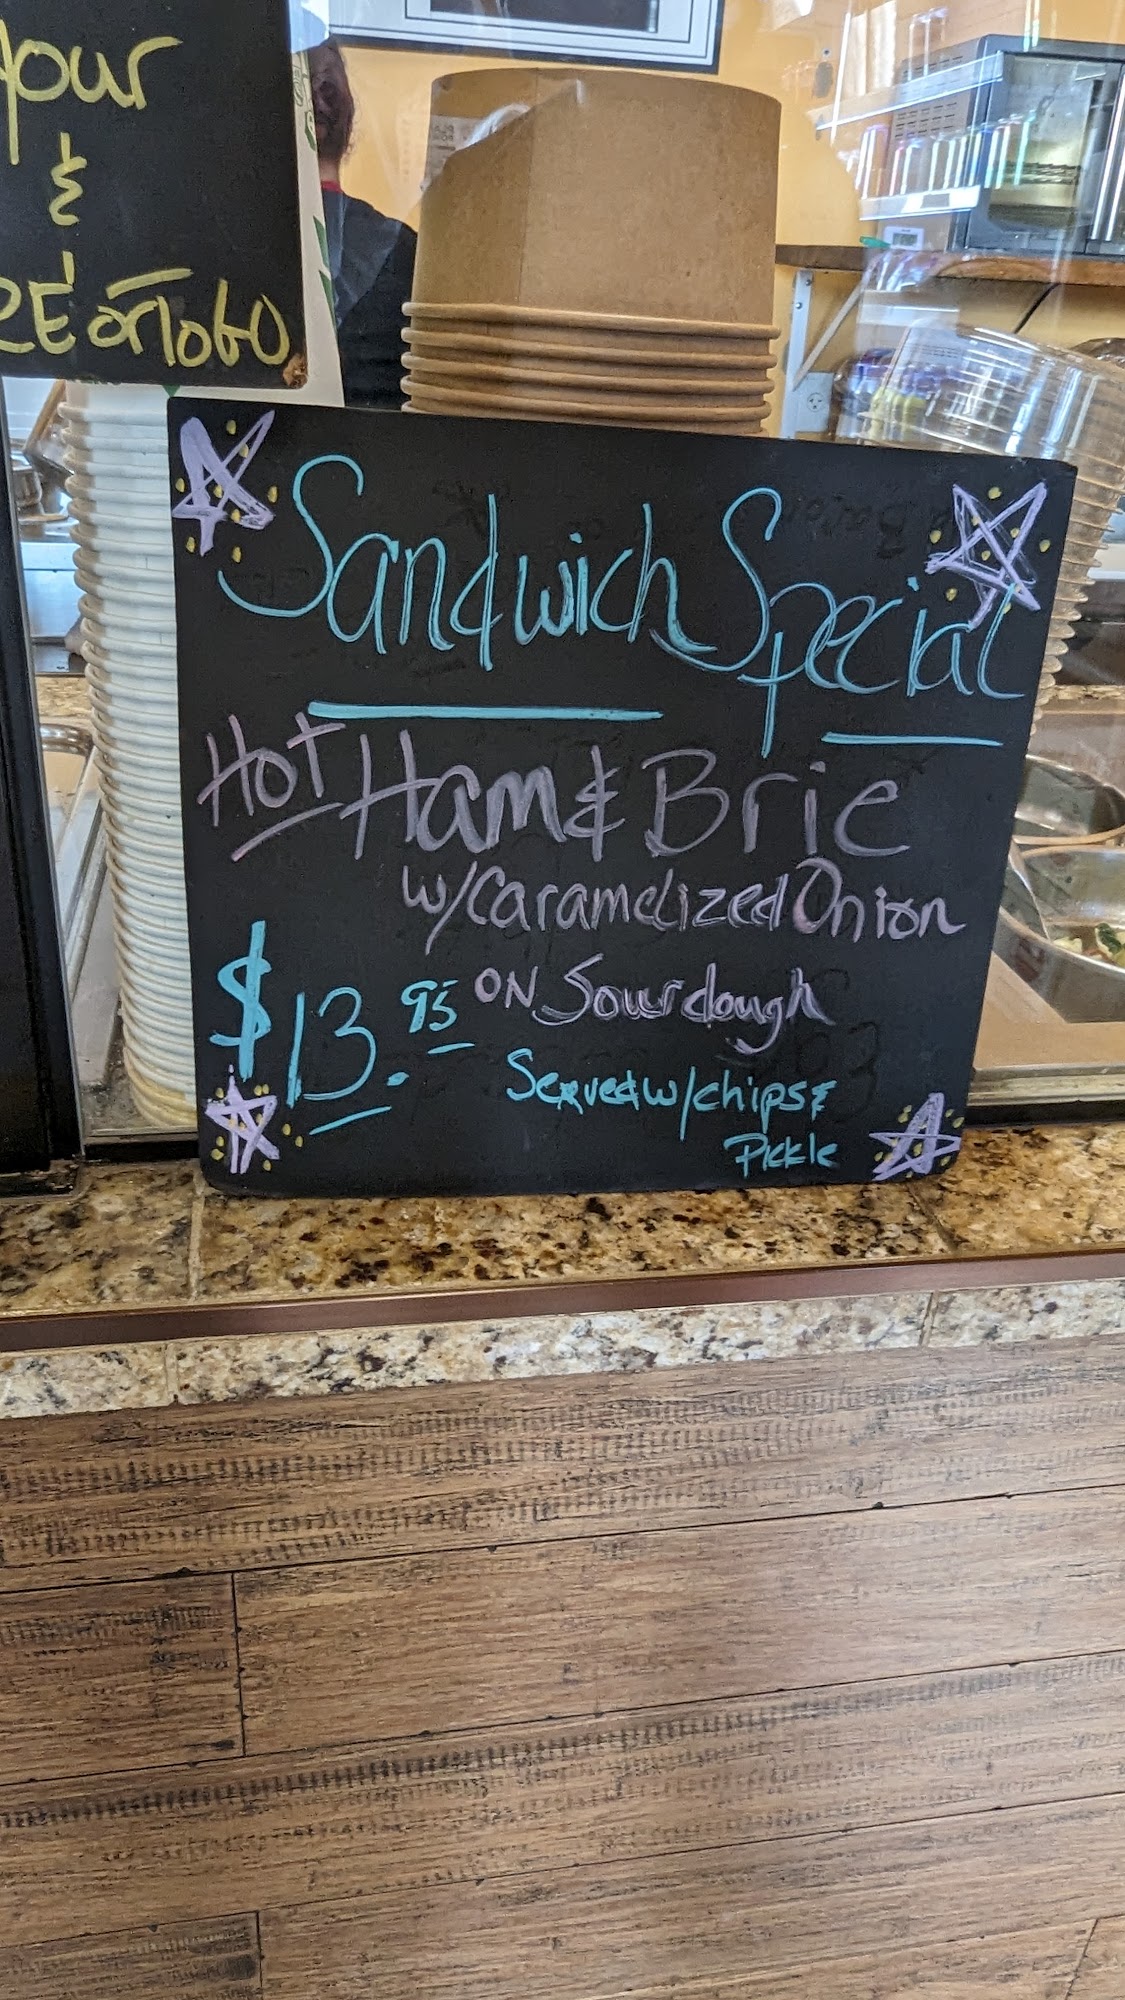 your
&
RE or To GO
Sandwich Special
Hot Ham & Brie
w/Caramelized Onion
$13.95 ON Sourdough
Served w/chips &
Pickle